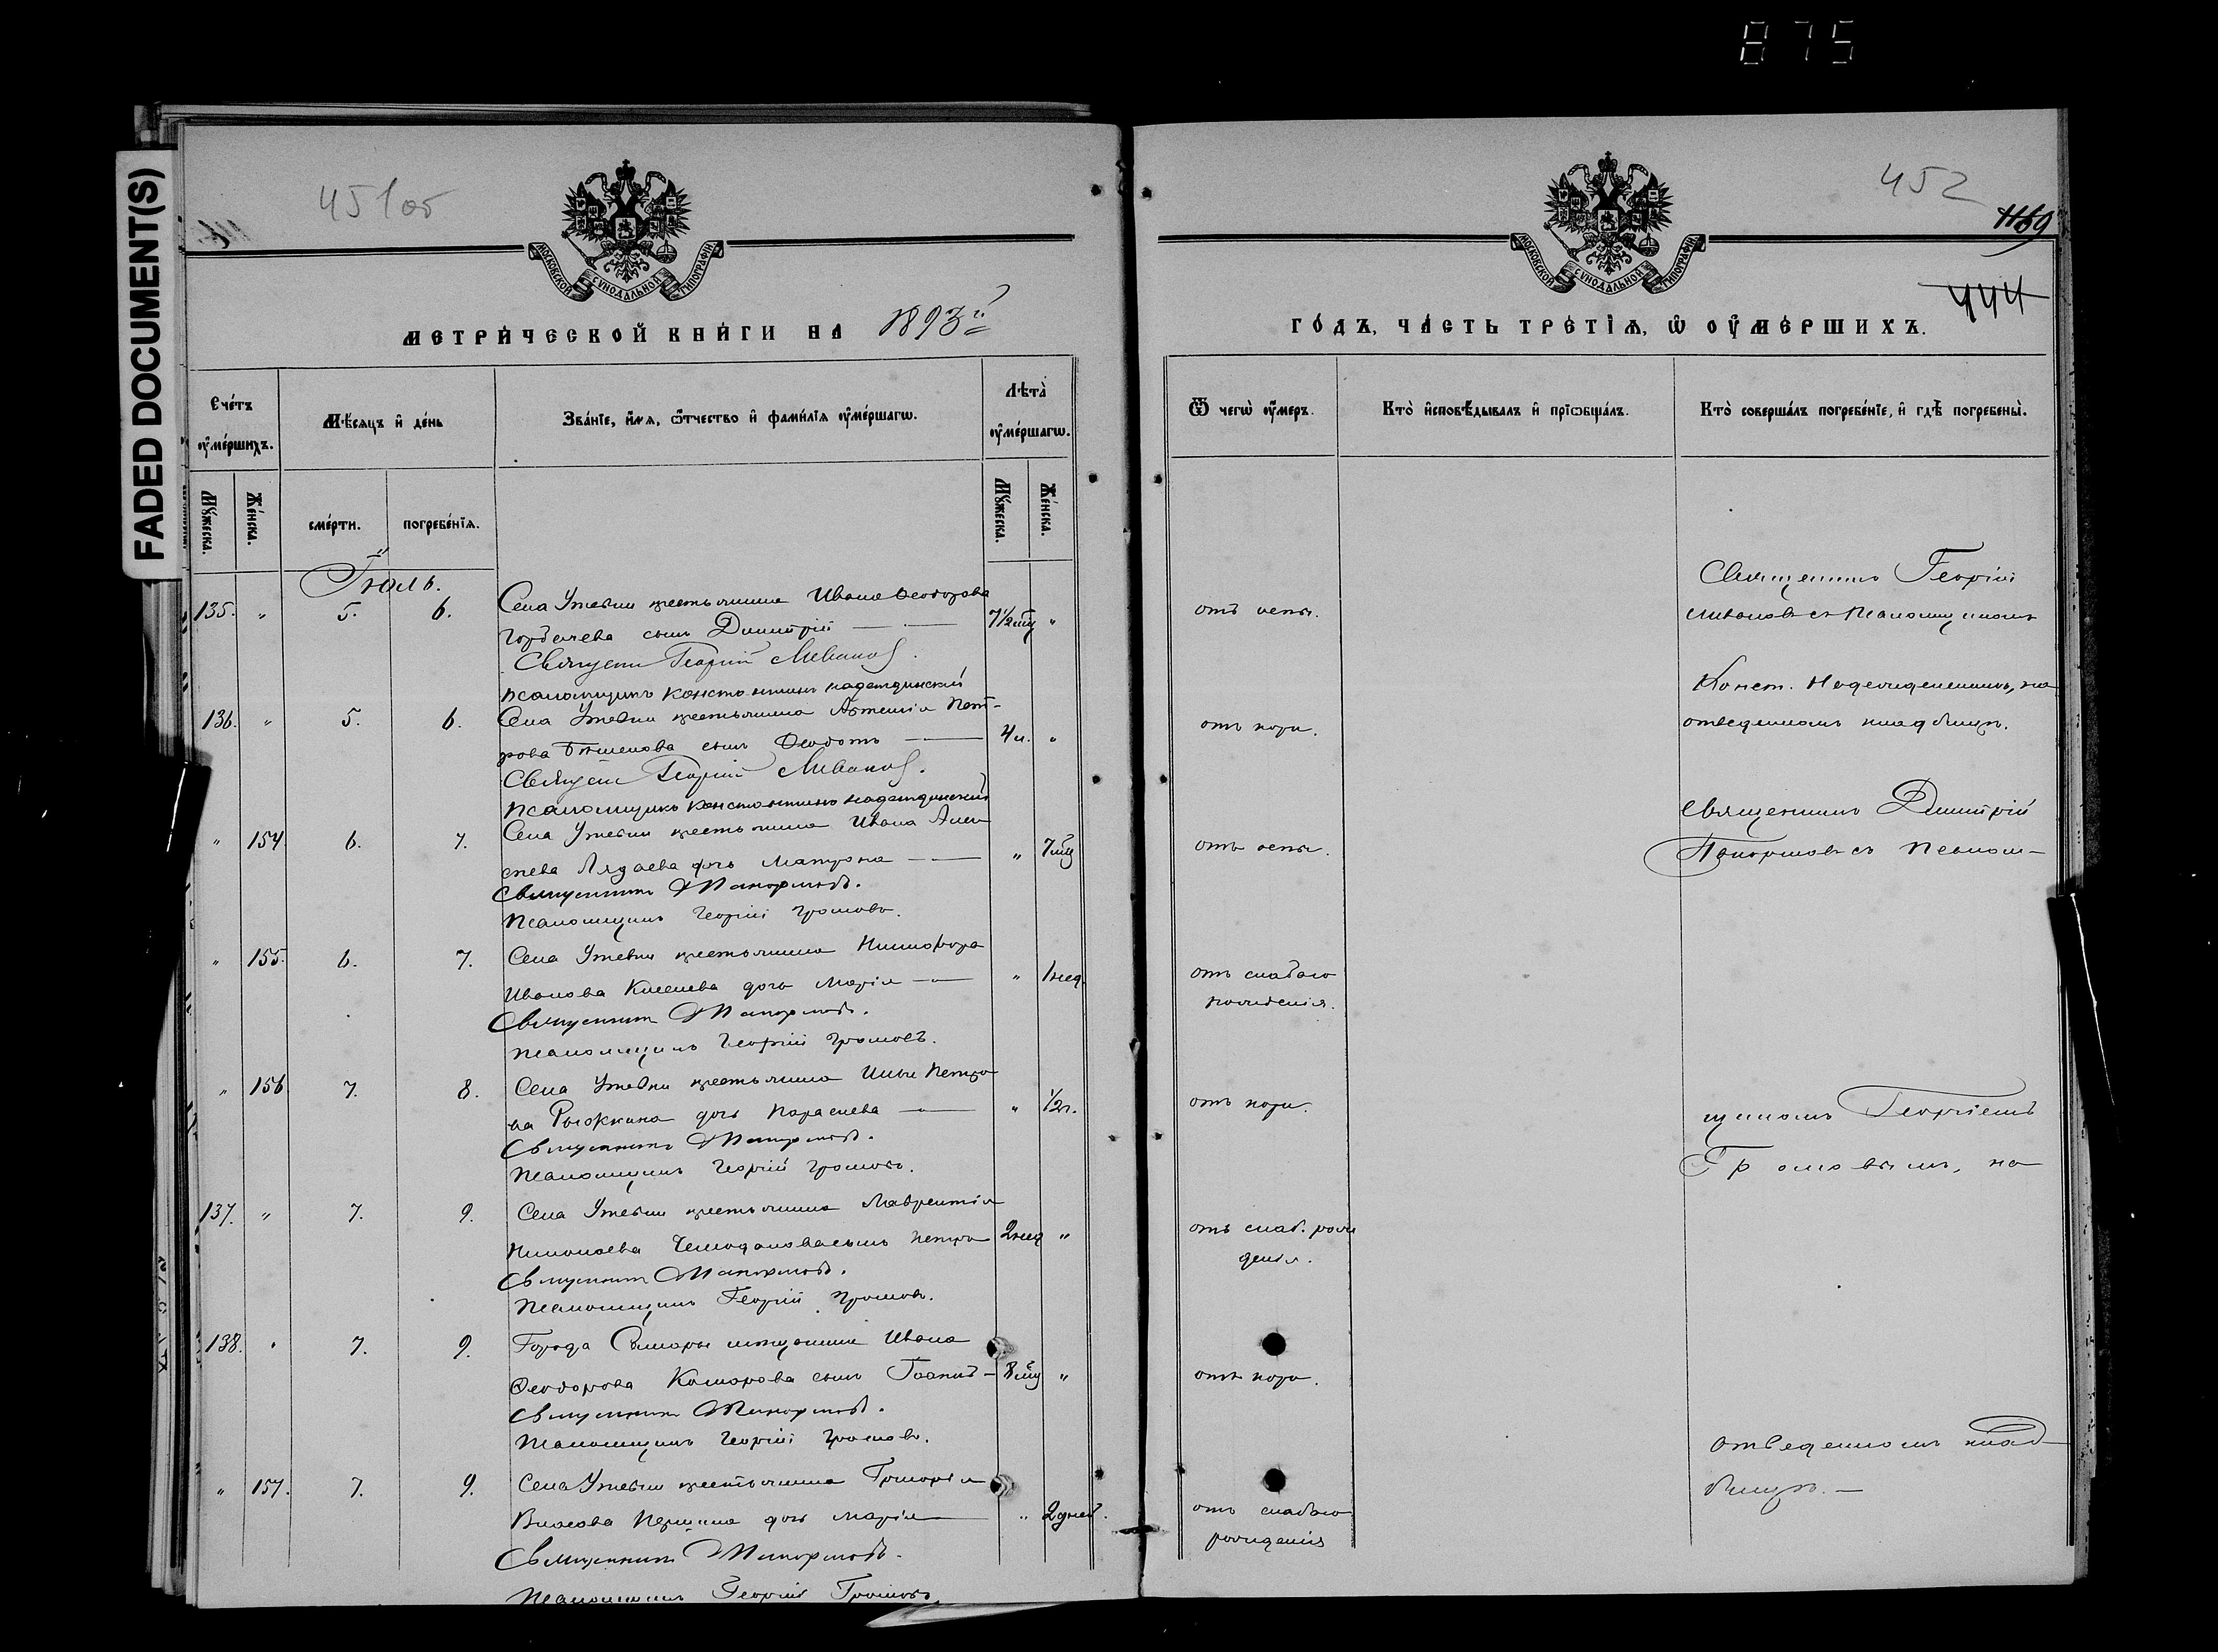 875
FADED DOCUMENT(S)
451об
МОСКОВСКОЙ СУНОДАЛЬНОЙ ТИПОГРАФІИ
МЕТРИЧЕСКОЙ КНИГИ НА 1893й
Счетъ умершихъ.
Мѣсяцъ и день
Званіе, имя, отчество и фамилія умершагω.
Лѣта умершагω.
Мужеска.
Женска.
смерти.
погребенія.
Мужеска.
Женска.
Іюль.
135. " 5. 6. Села Утевки крестьянина Ивана Ѳеодорова
Горбачева сынъ Димитрій — 7½ мц "
Священ Георгій Ливановъ.
псаломщикъ Константинъ Надеждинскій
136. " 5. 6. Села Утевки крестьянина Артемія Пет-
рова сынъ Ѳедотъ — 4 г. "
Священ Георгій Ливановъ.
псаломщикъ Константинъ Надеждинскій
" 154 6. 7. Села Утевки крестьянина Ивана Алек
сѣева Лядаева дочь Матрона — " 7 мц
Священникъ Д Панормовъ.
Псаломщикъ Георгій Громовъ.
" 155. 6. 7. Села Утевки крестьянина Никифора
Иванова Киселева дочь Марія — " 1 нед.
Священникъ Д Панормовъ.
псаломщикъ Георгій Громовъ.
" 156 7. 8. Села Утевки крестьянина Ильи Петро
ва Рыжкина дочь Параскева — " ½ г.
Священникъ Д Панормовъ.
Псаломщикъ Георгій Громовъ.
137. " 7. 9. Села Утевки крестьянина Лаврентія
Николаева Чемоданова сынъ Петръ 2 нед "
Священникъ Д Панормовъ.
Псаломщикъ Георгій Громовъ.
138. " 7. 9. Города Самары мѣщанина Ивана
Ѳеодорова Комарова сынъ Іоаннъ — 8 мц "
Священникъ Д Панормовъ.
Псаломщикъ Георгій Громовъ.
" 157. 7. 9. Села Утевки крестьянина Григорія
Власова дочь Марія — " 2 дней.
Священникъ Д Панормовъ.
Псаломщикъ Георгій Громовъ.
452
1169
444
МОСКОВСКОЙ СУНОДАЛЬНОЙ ТИПОГРАФІИ
ГОДЪ, ЧАСТЬ ТРЕТІЯ, Ѡ ОУМЕРШИХЪ.
Ѿ чегω умеръ.
Кто исповѣдывалъ и пріωбщалъ.
Кто совершалъ погребеніе, и гдѣ погребены.
отъ оспы.
отъ кори.
отъ оспы.
отъ слабаго
рожденія.
отъ кори.
отъ слаб. рож
денія.
отъ кори.
отъ слабаго
рожденія
Священникъ Георгій
Ливановъ съ псаломщикомъ
Конст. Надеждинскимъ, на
отведенномъ кладбищѣ.
Священникъ Димитрій
Панормовъ съ псалом-
щикомъ Георгіемъ
Громовымъ, на
отведенномъ клад-
бищѣ. —